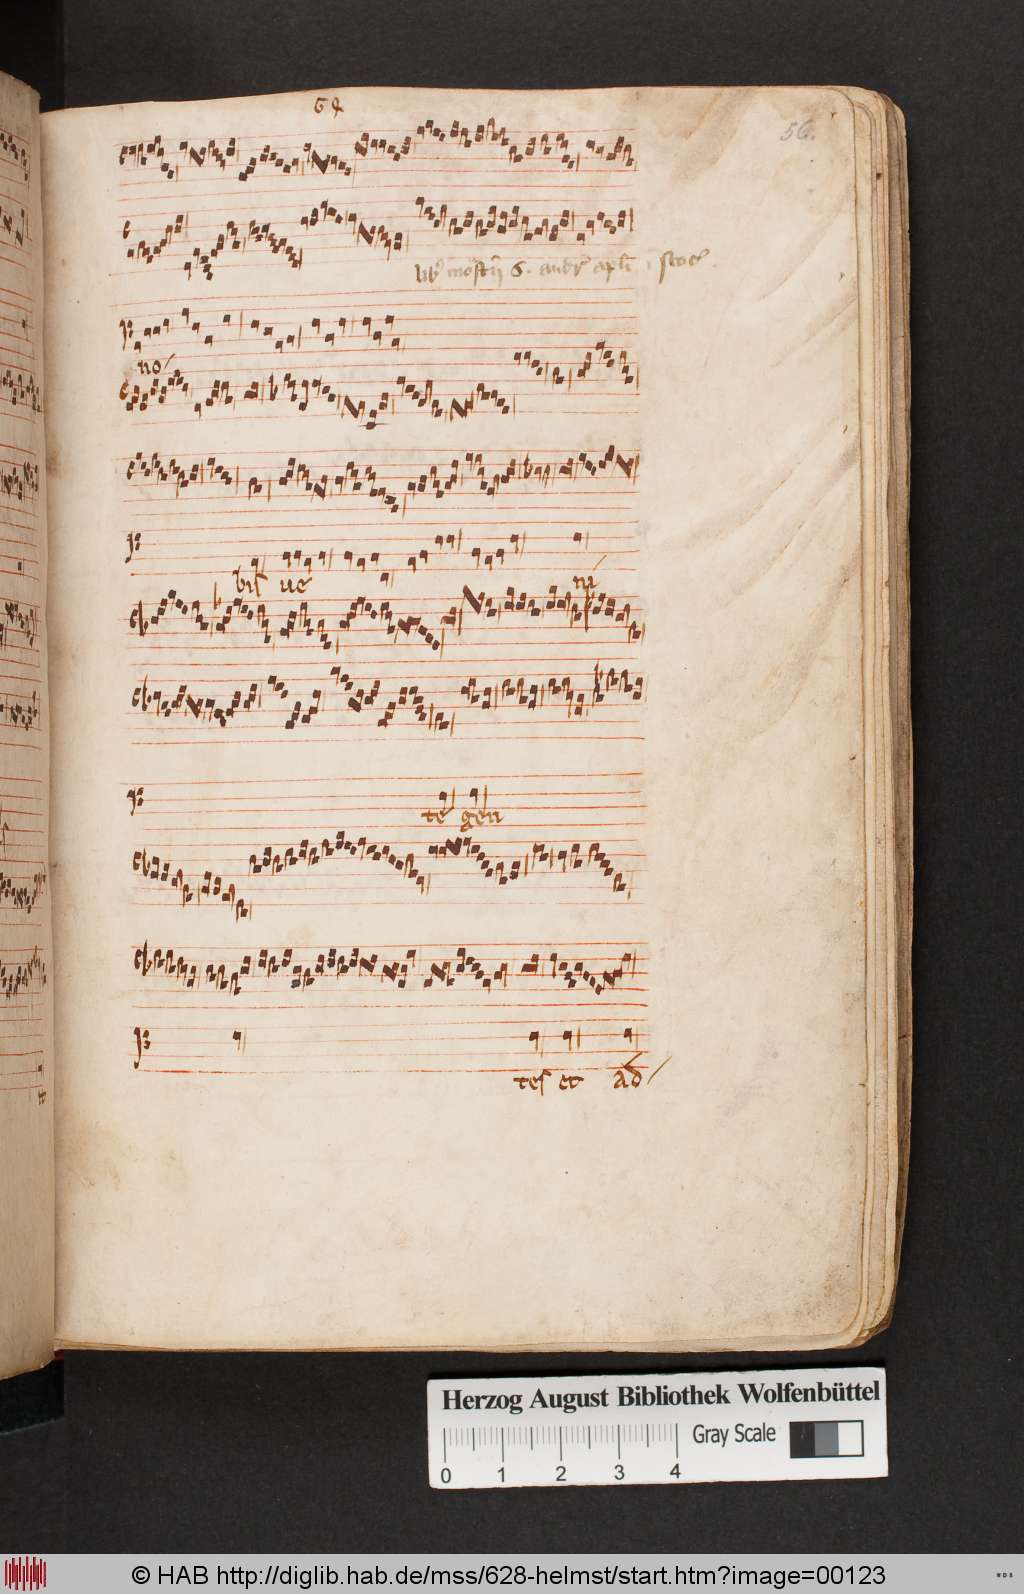 64
56.
lib' mo'st'ij S. andr' apl'i
no
bis ue ni
te gen
tes et ad
Herzog August Bibliothek Wolfenbüttel
Gray Scale
0 1 2 3 4
© HAB http://diglib.hab.de/mss/628-helmst/start.htm?image=00123